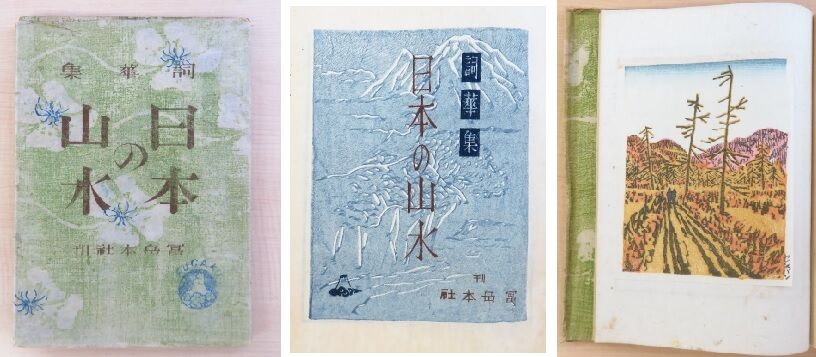 詞華集
日本の山水
冨岳本社刊
詞華集
日本の山水
冨岳本社
刊